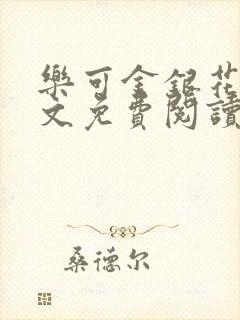 樂可金銀花
文免費閱讀
桑德尔